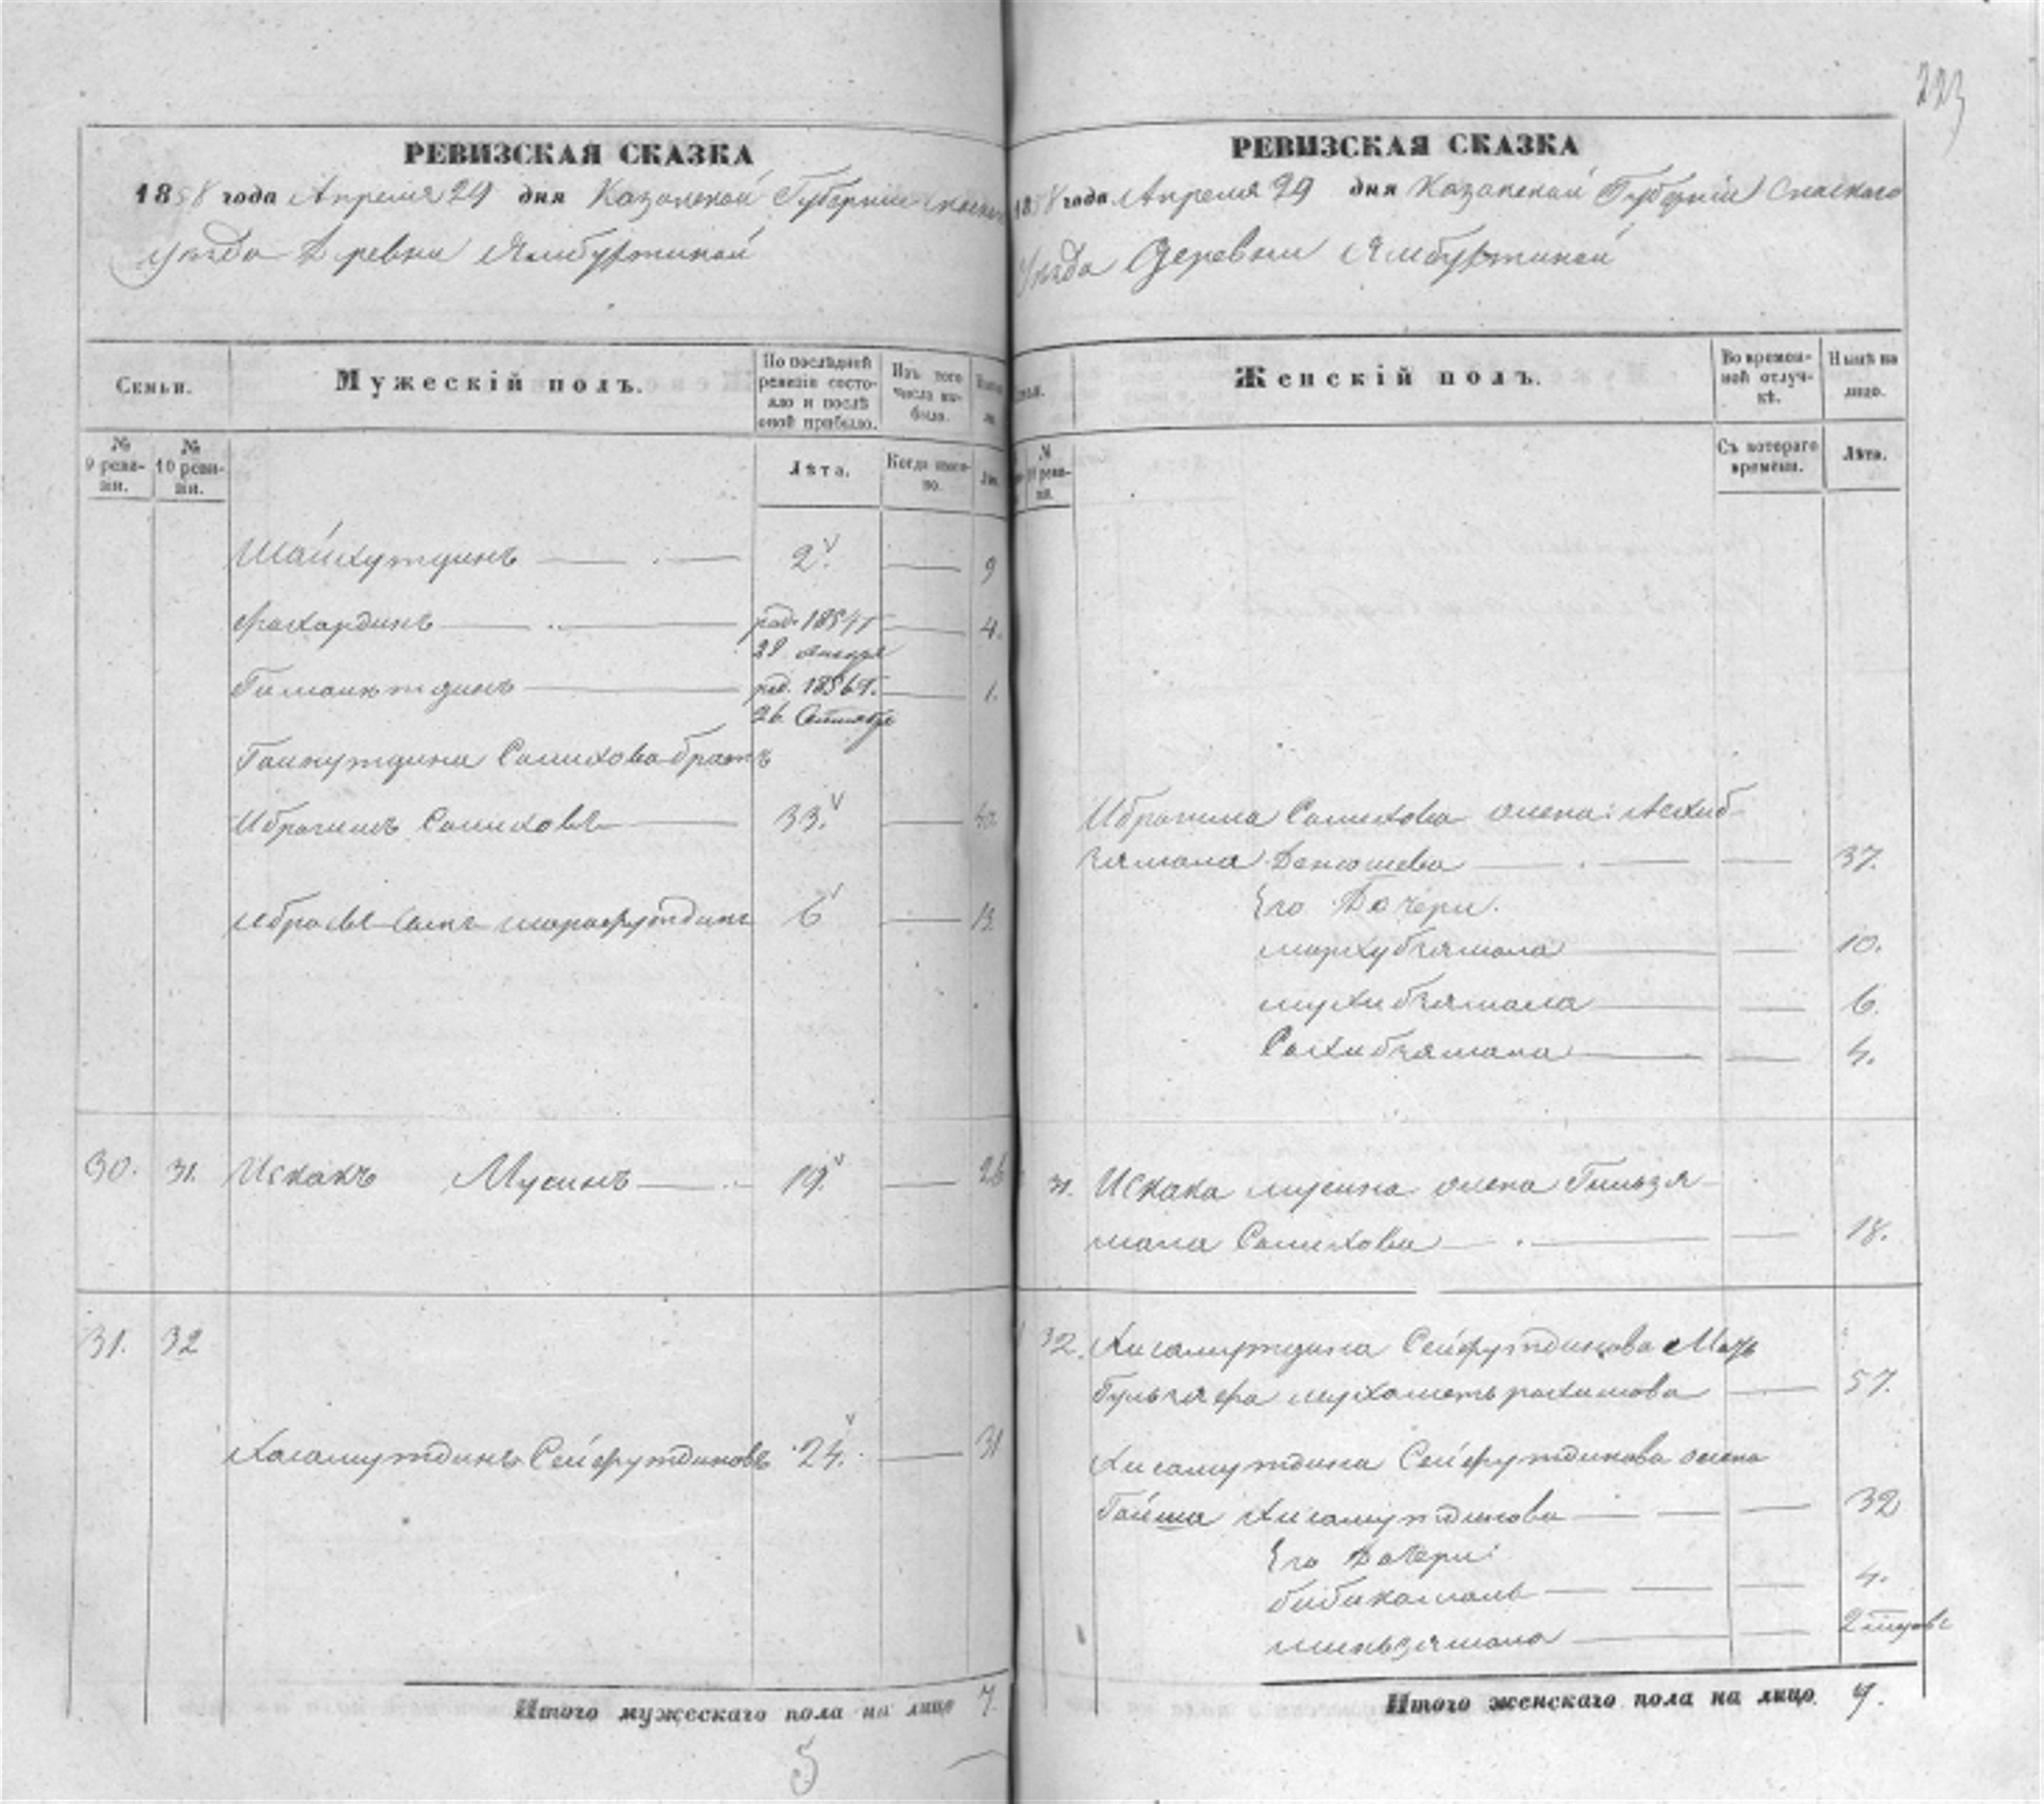 223
РЕВИЗСКАЯ СКАЗКА
1858 года Апреля 29 дня Казанской Губернiи Спаскаго
Уѣзда Деревни Ямбухтиной
Семьи.
Мужескiй полъ.
По послѣдней ревизiи состояло и послѣ оной прибыло.
Изъ того числа выбыло.
№ 9 ревизiи.
№ 10 ревизiи.
Лѣта.
Когда именно.
Шайхутдинъ 2 9
Фахардинъ род. 1854 г 4.
29 Января
Гимаиктдинъ род. 1856 г. 1.
26 Сентября
Гайнутдина Салихова братъ
Ибрагимъ Салиховъ 33.
Ибраевъ сынъ Шарафутдинъ 6 13
30. 31. Искакъ Мусинъ 19. 26
31. 32
Хисамутдинъ Сейфутдиновъ 24. 31
Итого мужескаго пола на лицо 7.
5
РЕВИЗСКАЯ СКАЗКА
1858 года Апреля 29 дня Казанской Губернiи Спаскаго
Уѣзда Деревни Ямбухтиной
Женскiй полъ.
Во временной отлучкѣ.
Нынѣ на лицо.
№ 10 ревизiи.
Съ котораго времени.
Лѣта.
Ибрагима Салихова жена:
37.
Его Дочери.
Мархубзямала 10.
Мухибзямала 6.
Сахибзямала 4.
31. Искака Мусина жена Гильзя
мала Салихова 18.
32. Хисамутдина Сейфутдинова Мать
Мухаметърахимова 57.
Хисамутдина Сейфутдинова жена
Гайша Хисамутдинова 32
Его Дочери:
Бибикамаль 4.
Миньзямала 2
Итого женскаго пола на лицо 9.